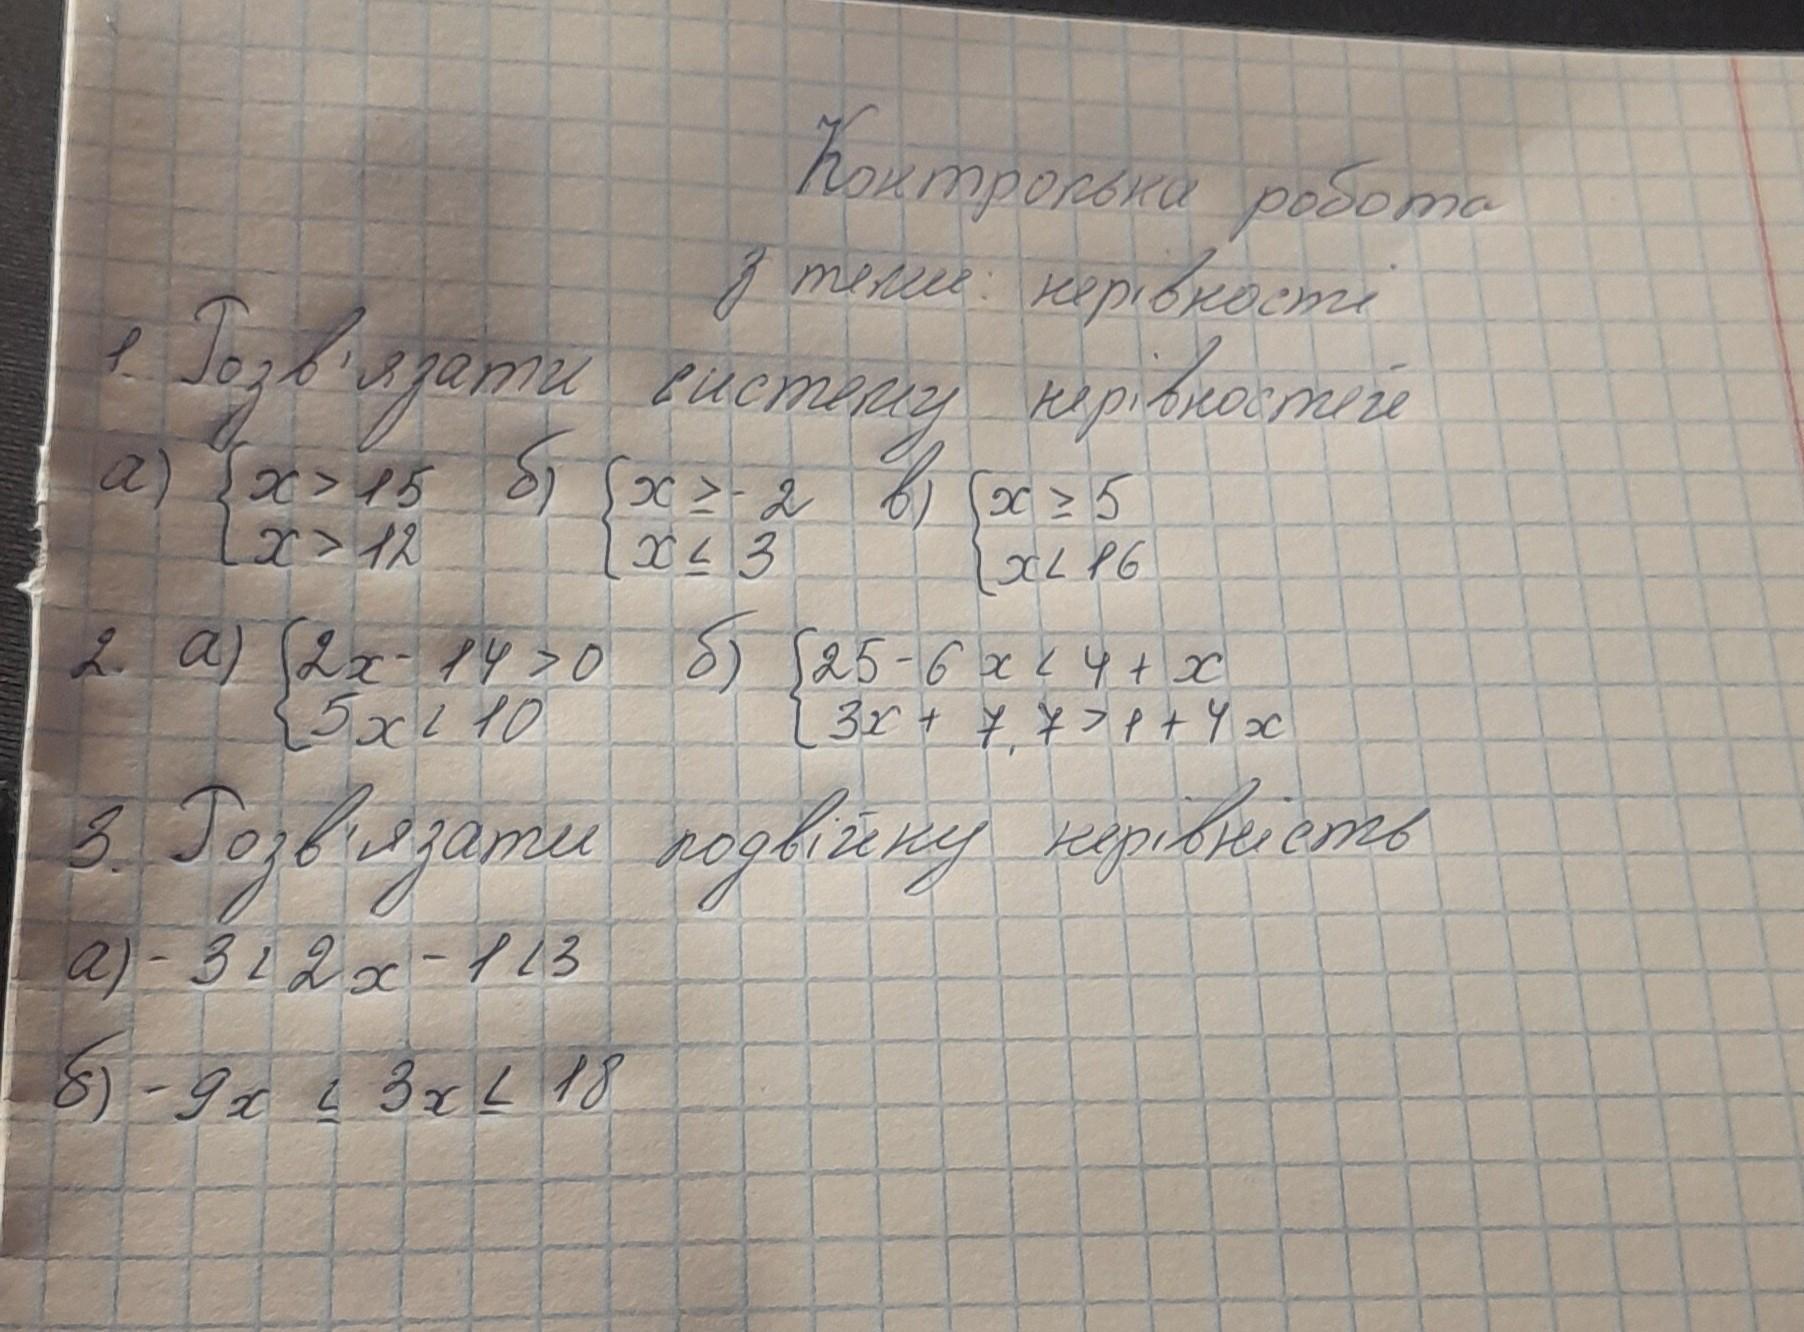 Контрольна робота
з теми: нерівності
1. Розв'язати систему нерівностей
а) { x > 15 б) { x ≥ -2 в) { x ≥ 5
x > 12 x ≤ 3 x < 16
2. а) { 2x - 14 > 0 б) { 25 - 6x < 4 + x
5x < 10 3x + 7,7 > 1 + 4x
3. Розв'язати подвійну нерівність
а) - 3 < 2x - 1 < 3
б) - 9x ≤ 3x ≤ 18